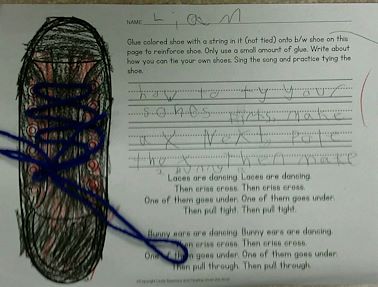 NAME Liam
Glue colored shoe with a string in it (not tied) onto b/w shoe on this
page to reinforce shoe. Only use a small amount of glue. Write about
how you can tie your own shoes. Sing the song and practice tying the
shoe.
how to ty your
first, make
a X Next, pole
the x then make
Laces are dancing. Laces are dancing.
Then criss cross. Then criss cross.
One of them goes under. One of them goes under.
Then pull tight. Then pull tight.
Bunny ears are dancing. Bunny ears are dancing.
Then criss cross. Then criss cross.
One of them goes under. One of them goes under.
Then pull through. Then pull through.